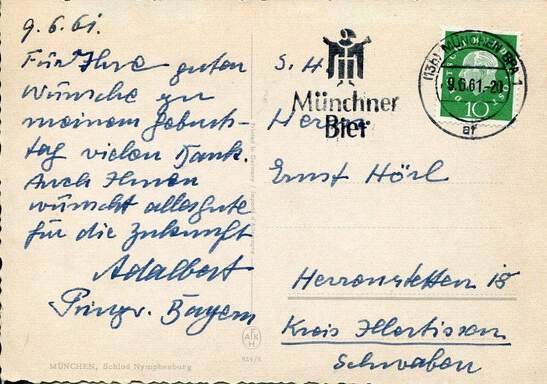 9.6.61.
Für Ihre guten
Wünsche zu
meinem Geburts-
tag vielen Dank.
Auch Ihnen
wünscht alles gute
für die Zukunft
Adalbert
Prinz v. Bayern
MÜNCHEN, Schloß Nymphenburg
AKH
Münchner
Bier
(13b) MÜNCHEN BPA 1
-9.6.61-20
af
10
S. H.
Herrn
Ernst Hörl
Herrenstetten 18
Kreis Illertissen
Schwaben